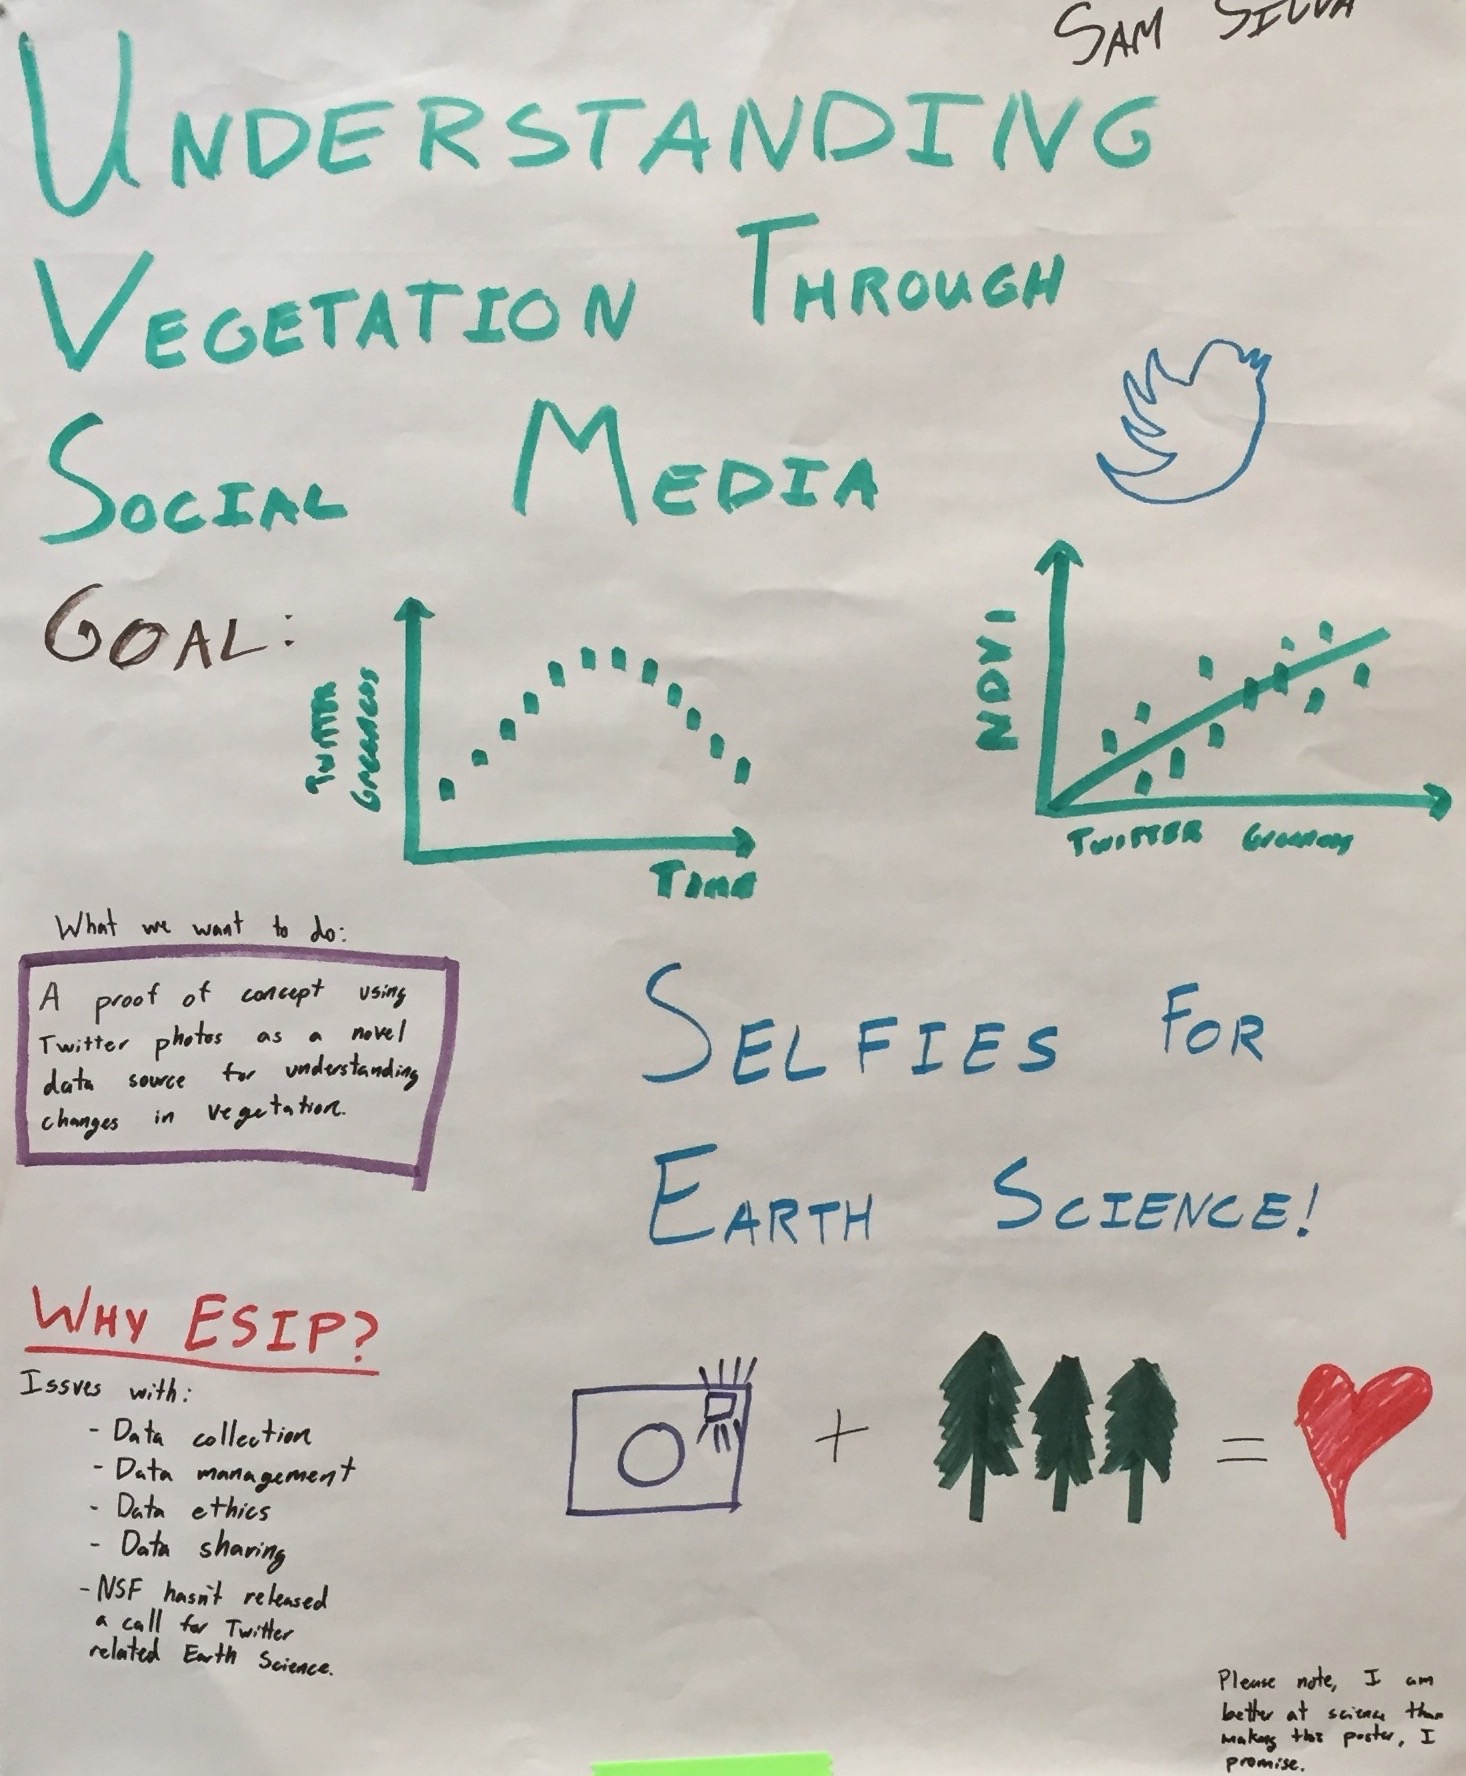 SAM SILVA
UNDERSTANDING
VEGETATION THROUGH
SOCIAL MEDIA
GOAL:
TWITTER
Greenness
TIME
NDVI
TWITTER Greenness
What we want to do:
A proof of concept using
Twitter photos as a novel
data source for understanding
changes in vegetation.
SELFIES FOR
EARTH SCIENCE!
WHY ESIP?
Issues with:
- Data collection
- Data management
- Data ethics
- Data sharing
- NSF hasn't released
a call for Twitter
related Earth Science.
+
=
Please note, I am
better at science than
making this poster, I
promise.